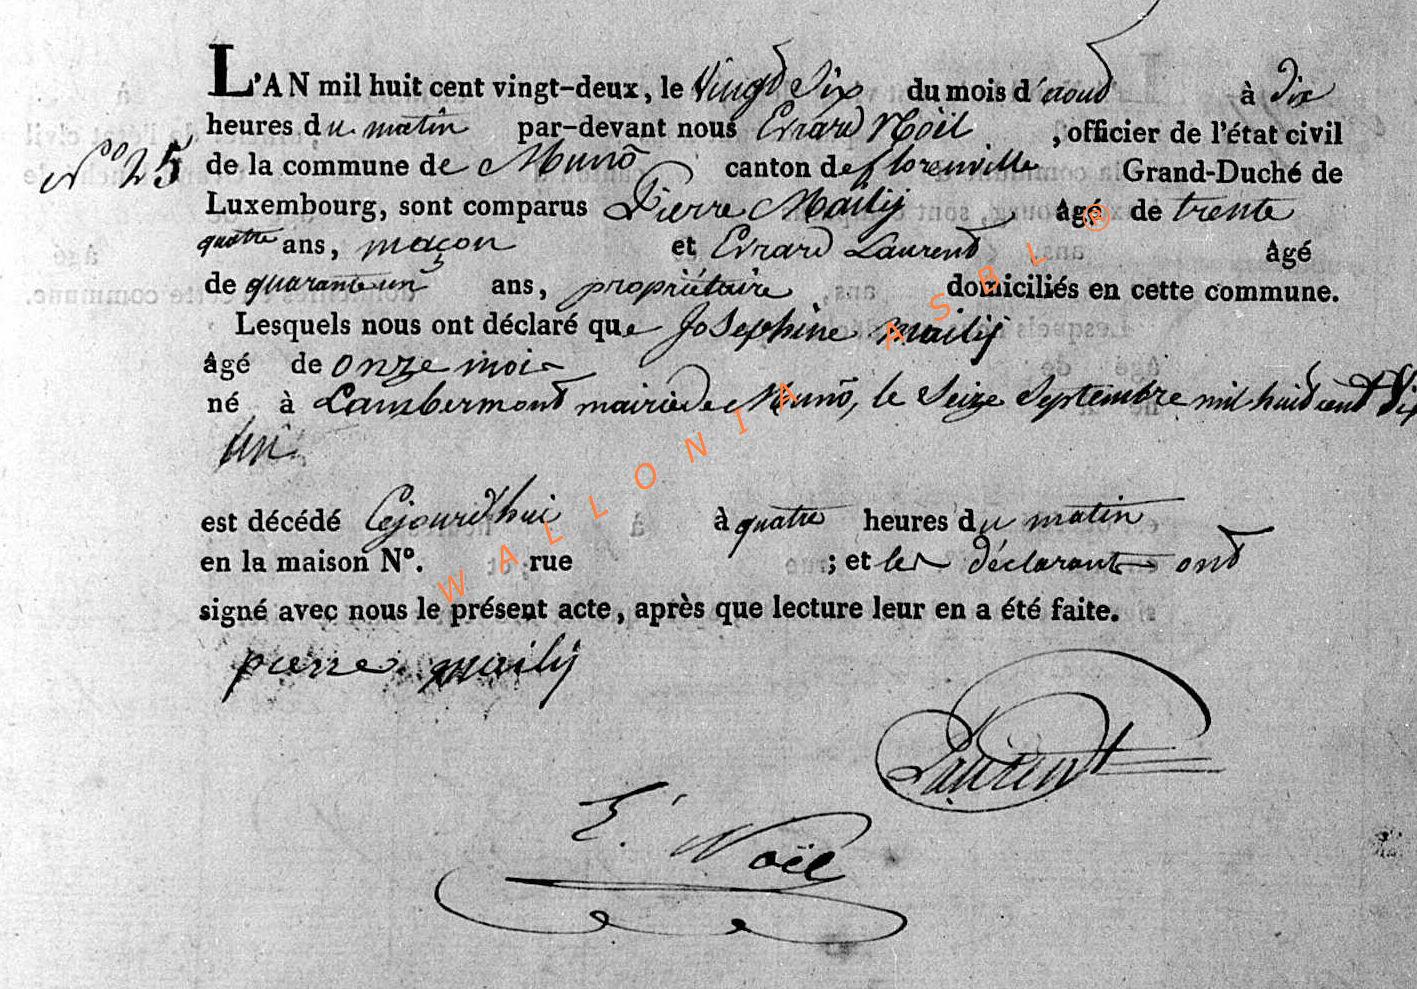 L'AN mil huit cent vingt-deux, le Vingt Six du mois d'aout à dix
heures du matin par-devant nous Evrard Noël, officier de l'état civil
N° 25
de la commune de Muno canton de florenville Grand-Duché de
Luxembourg, sont comparus Pierre Mailij âgé de trente
quatre ans, maçon et Evrard Laurent âgé
de quarante un ans, propriétaire domiciliés en cette commune.
Lesquels nous ont déclaré que Josephine mailij
âgé de onze mois
né à Lambermont mairie de Muno, le Seize Septembre mil huit cent
un
est décédé Cejourd'hui à quatre heures du matin
en la maison N°. rue ; et les déclarants ont
signé avec nous le présent acte, après que lecture leur en a été faite.
pierre mailij
Laurent
E. Noël
WALLONIA ASBL ®